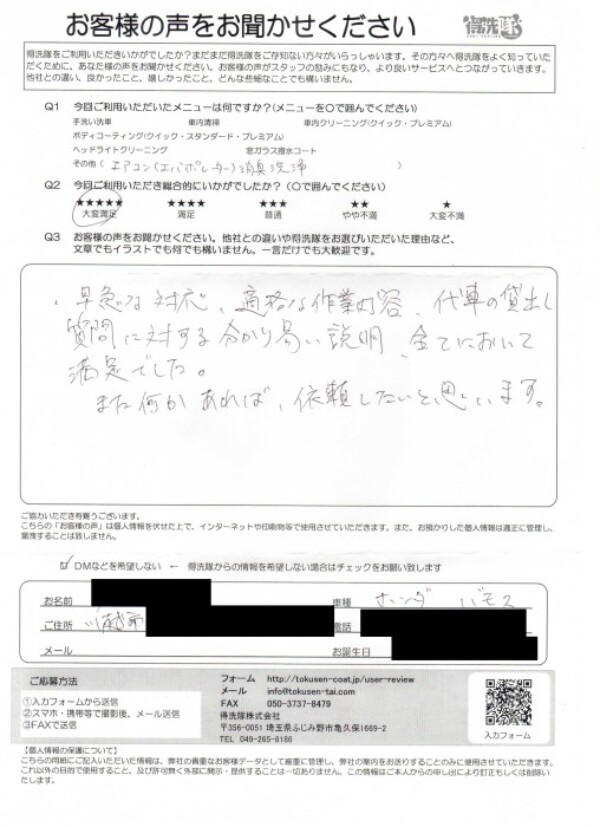 お客様の声をお聞かせください
得洗隊
得洗隊をご利用いただきいかがでしたか?まだまだ得洗隊をご存知ない方々がいらっしゃいます。その方々へ得洗隊をよく知っていた
だくために、あなた様の声をお聞かせください。お客様の声がスタッフの励みにもなり、より良いサービスへとつながっていきます。
他社との違い、良かったこと、嬉しかったこと、どんな些細なことでも構いません。
Q1 今回ご利用いただいたメニューは何ですか?(メニューを○で囲んでください)
手洗い洗車 車内清掃 車内クリーニング(クイック・プレミアム)
ボディコーティング(クイック・スタンダード・プレミアム)
ヘッドライトクリーニング 窓ガラス撥水コート
その他(エアコン(エバポレーター)消臭洗浄 )
Q2 今回ご利用いただき総合的にいかがでしたか?(○で囲んでください)
★★★★★ ★★★★ ★★★ ★★ ★
大変満足 満足 普通 やや不満 大変不満
Q3 お客様の声をお聞かせください。他社との違いや得洗隊をお選びいただいた理由など、
文章でもイラストでも何でも構いません。一言だけでも大歓迎です。
・早急な対応、適格な作業内容、代車の貸出し
質問に対する分かり易い説明、全てにおいて
満足でした。
また何かあれば、依頼したいと思います。
ご協力いただき有難うございます。
こちらの「お客様の声」は個人情報を伏せた上で、インターネットや印刷物等で使用させていただきます。また、お預かりした個人情報は適正に管理し、
漏洩することは致しません。
DMなどを希望しない ← 得洗隊からの情報を希望しない場合はチェックをお願い致します
お名前 車種 ホンダ バモス
ご住所 川越市 電話
メール お誕生日
ご応募方法
①入力フォームから送信
②スマホ・携帯等で撮影後、メール送信
③FAXで送信
フォーム http://tokusen-coat.jp/user-review
メール info@tokusen-tai.com
FAX 050-3737-8479
得洗隊株式会社
〒356-0051 埼玉県ふじみ野市亀久保1669-2
TEL 049-265-8186
入力フォーム
【個人情報の保護について】
こちらの用紙にご記入いただいた情報は、弊社の貴重なお客様データとして厳重に管理し、弊社の案内をお送りすることのみに使用させていただきます。
これ以外の目的で使用すること、及び許可無く外部に開示・提供することは一切ありません。この情報はご本人からの申し出により訂正もしくは削除い
たします。